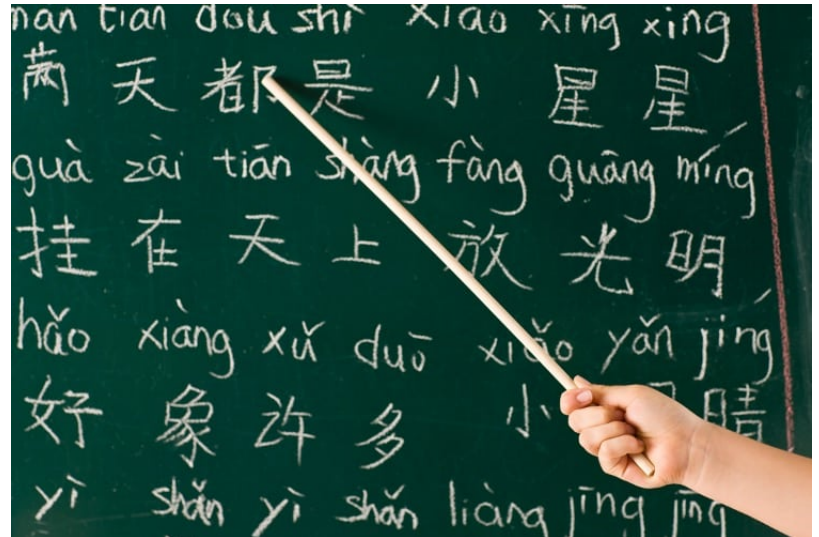 nan tian dou shì xiao xīng xing
满 天 都 是 小 星 星
guà zài tiān shàng fàng guāng míng
挂 在 天 上 放 光 明
hǎo xiàng xǔ duō xiǎo yǎn jíng
好 象 许 多 小 睛
yì shǎn yì shǎn liàng jīng jīng